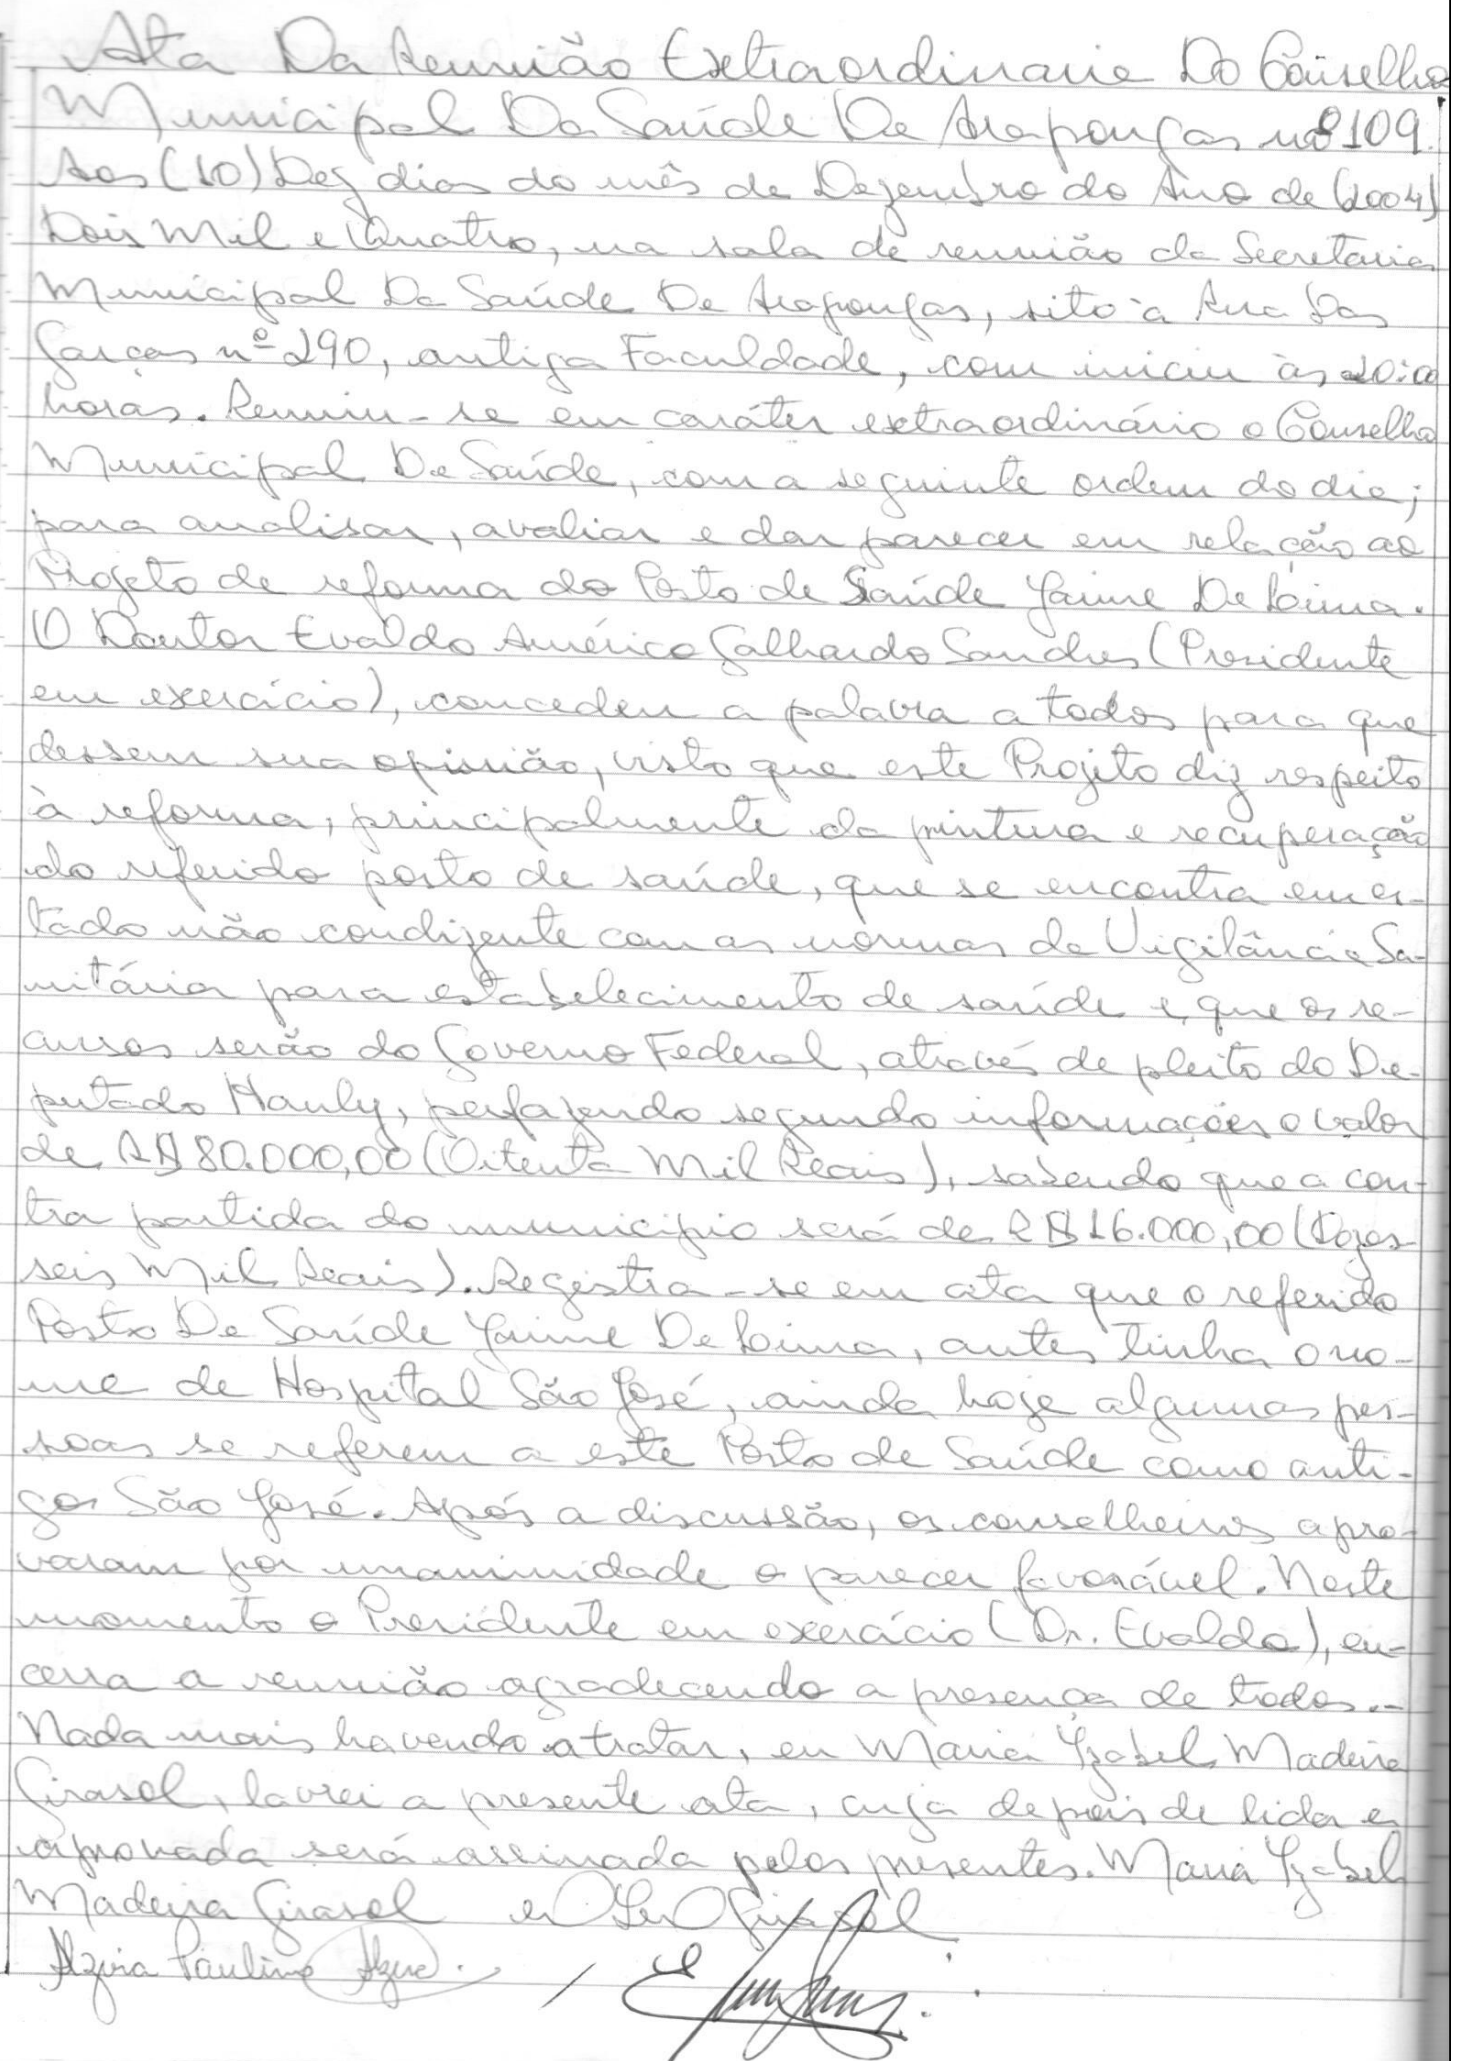 Ata Da Reunião Extraordinaria Do Conselho
Municipal Da Saúde De Arapongas nº 109.
Aos (10) Dez dias do mês de Dezembro do Ano de (2004)
Dois Mil e Quatro, na sala de reunião da Secretaria
Municipal Da Saúde De Arapongas, sito à Rua Das
Garças nº 290, antiga Faculdade, com iniciu às 20:00
horas. Reuniu-se em caráter extraordinário o Conselho
Municipal De Saúde, com a seguinte ordem do dia;
para analisar, avaliar e dar parecer em relação ao
Projeto de reforma do Posto de Saúde Jaime De Lima.
O Doutor Evaldo Américo Galhardo Sandres (Presidente
em exercício), concedeu a palavra a todos para que
dessem sua opinião, visto que este Projeto diz respeito
à reforma, principalmente da pintura e recuperação
do referido posto de saúde, que se encontra em es-
tado não condizente com as normas da Vigilância Sa-
nitária para estabelecimento de saúde e que os re-
cursos serão do Governo Federal, através de pleito do De-
putado Hauly, perfazendo segundo informações o valor
de R$ 80.000,00 (Oitenta Mil Reais), sabendo que a con-
tra partida do município será de R$ 16.000,00 (Dezes-
seis Mil Reais). Registra-se em ata que o referido
Posto De Saúde Jaime De Lima, antes tinha o no-
me de Hospital São José, ainda hoje algumas pes-
soas se referem a este Posto de Saúde como anti-
go São José. Após a discussão, os conselheiros apro-
varam por unanimidade o parecer favorável. Neste
momento o Presidente em exercício (Dr. Evaldo), en-
cerra a reunião agradecendo a presença de todos.-
Nada mais havendo a tratar, eu Maria Yzabel Madeira
Girasol, lavrei a presente ata, cuja depois de lida e
aprovada será assinada pelos presentes. Maria Yzabel
Madeira Girasol
Alzira Paulino